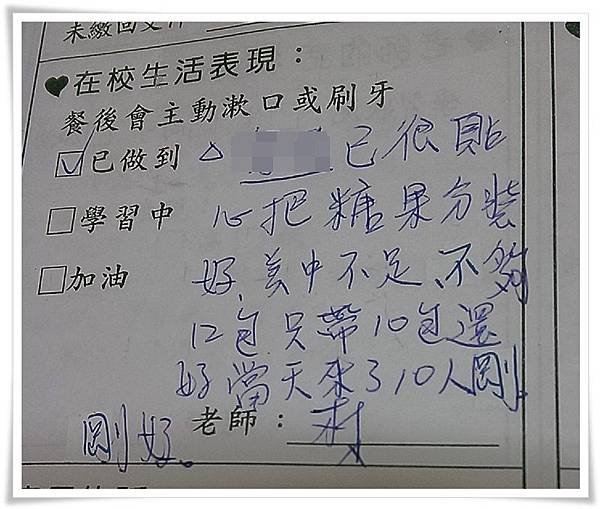 未繳回
♥在校生活表現：
餐後會主動漱口或刷牙
☑已做到 △ 已很貼
□學習中 心把糖果分裝
□加油 好,美中不足、不夠
12包只帶10包還
好當天來了10人剛
老師：
剛好。